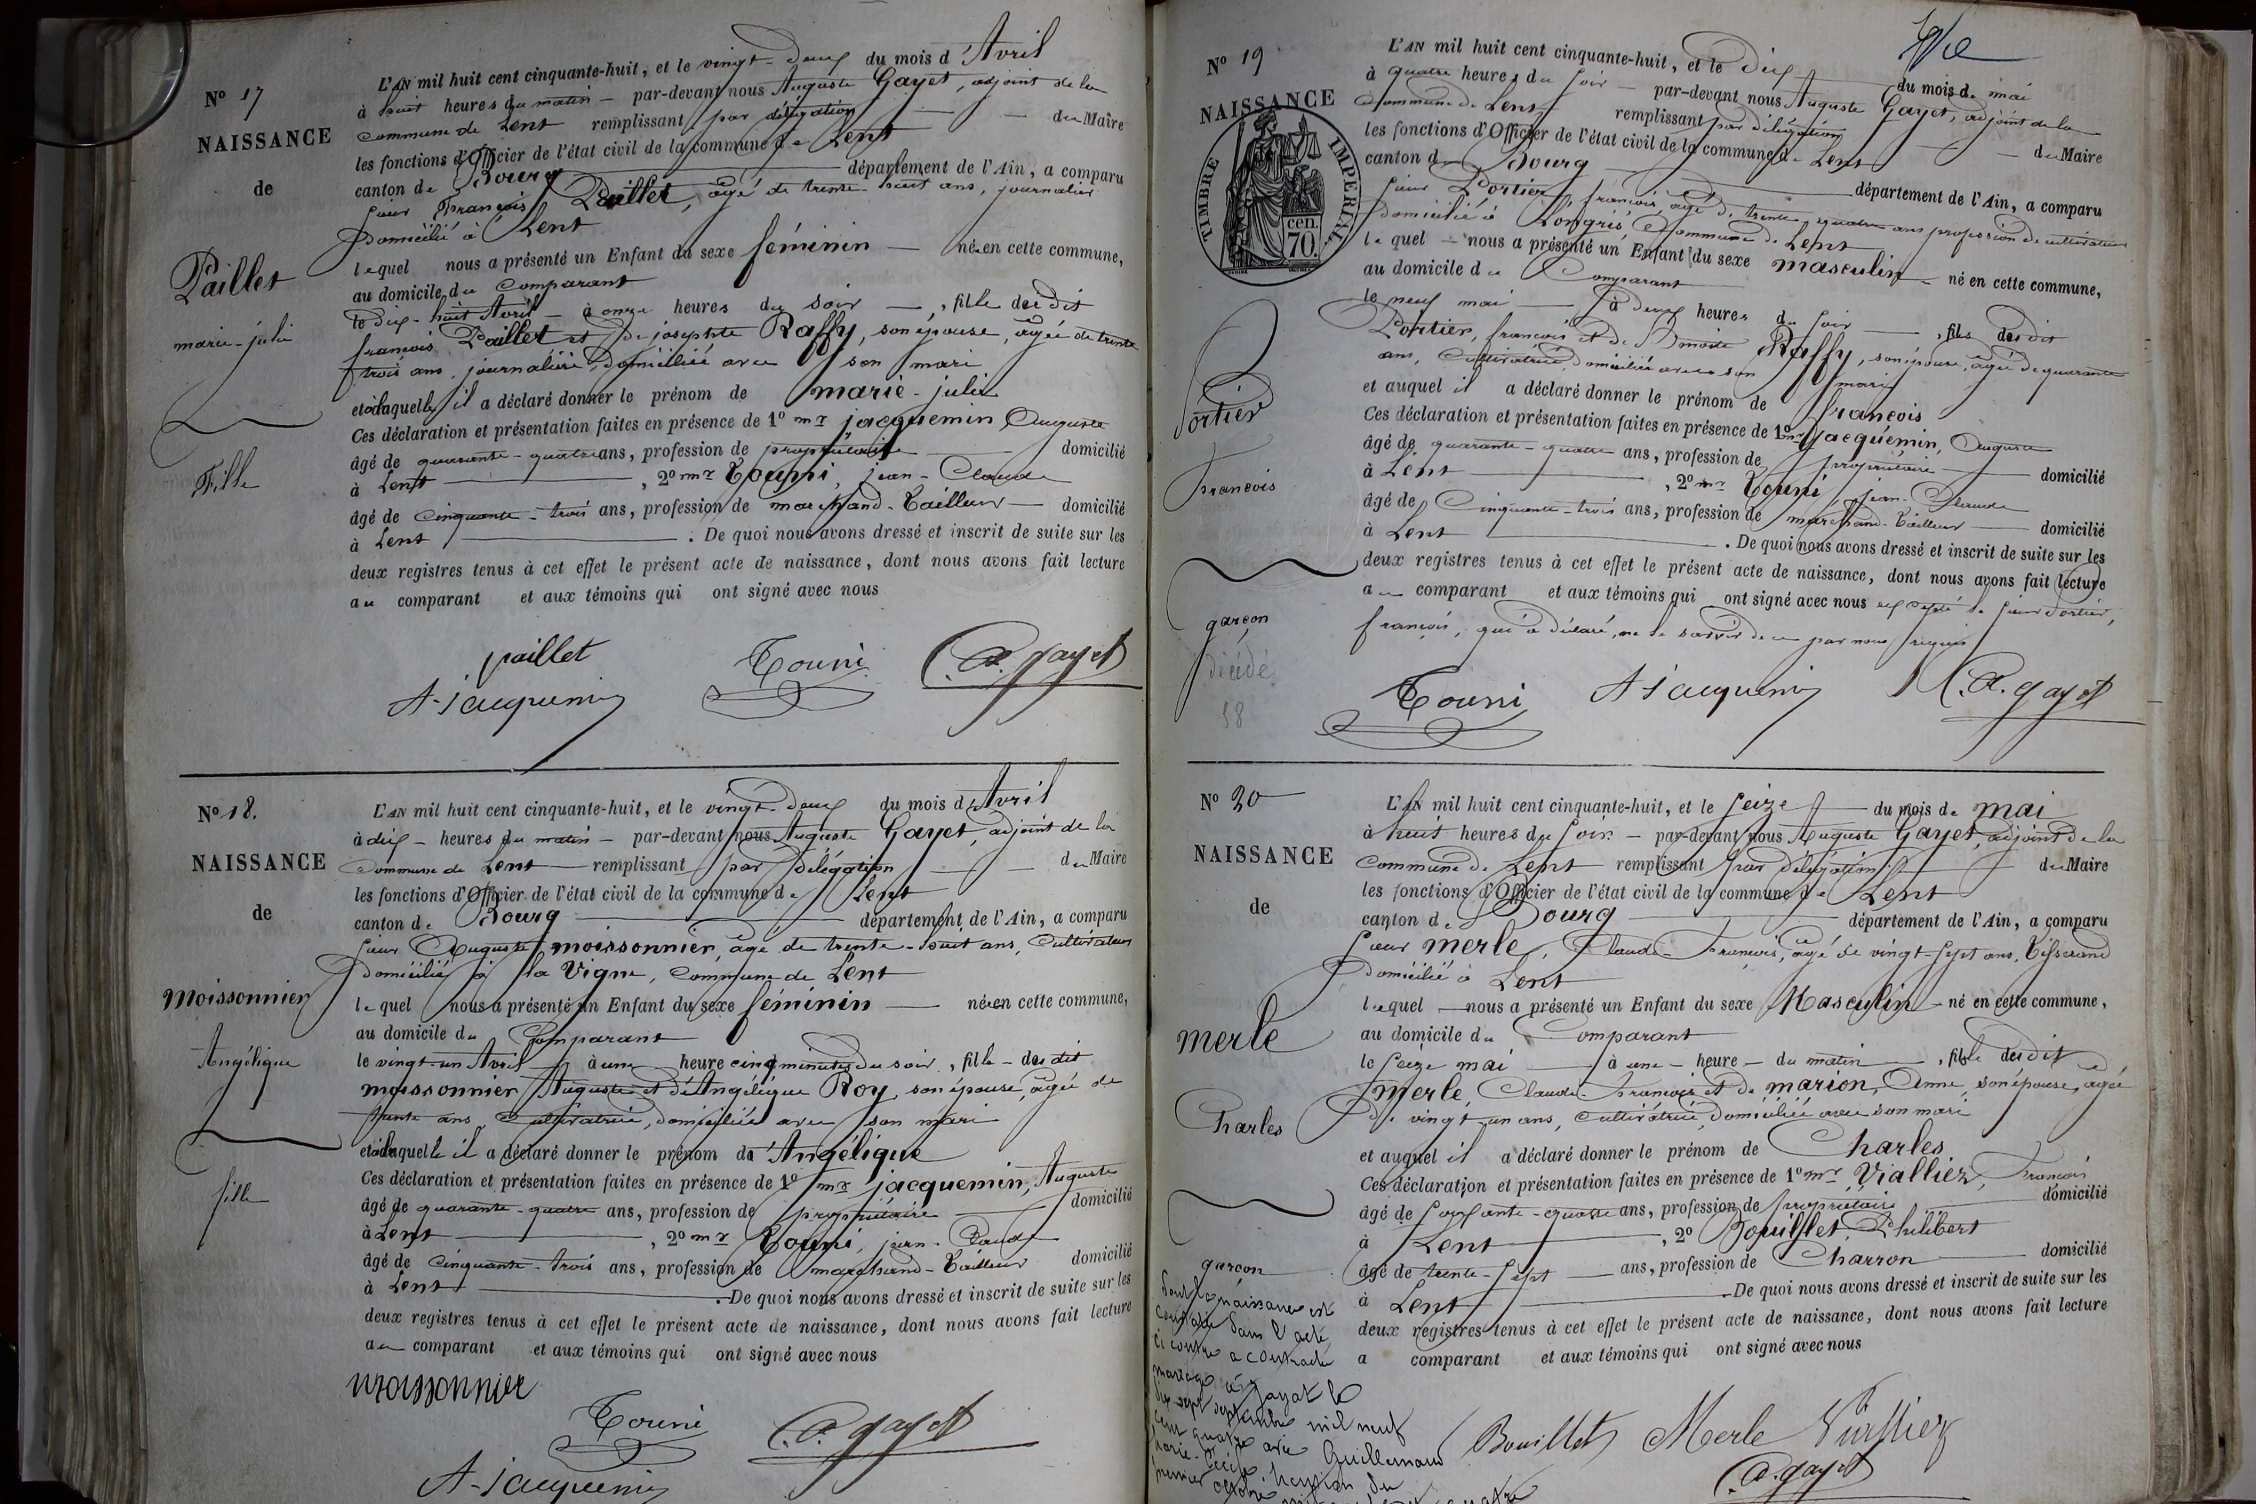 N° 17
NAISSANCE
de
Paillet
marie-julie
Fille
L'AN mil huit cent cinquante-huit, et le vingt-deux du mois d'Avril
à huit heures du matin — par-devant nous Auguste Gayet, adjoint de la
commune de Lent remplissant par délégation — du Maire
les fonctions d'Officier de l'état civil de la commune de Lent
canton de Bourg département de l'Ain, a comparu
sieur François Paillet, âgé de trente-huit ans, journalier
domicilié à Lent
lequel nous a présenté un Enfant du sexe féminin — née en cette commune,
au domicile du comparant
le dix-huit Avril — à onze heures du soir —, fille dudit
françois Paillet et de josephte Raffy, son épouse, âgée de trente
trois ans, journalière, domiciliée avec son mari
et à laquelle il a déclaré donner le prénom de marie-julie
Ces déclaration et présentation faites en présence de 1° mr jacquemin Auguste
âgé de quarante-quatre ans, profession de propriétaire domicilié
à Lent, 2° mr Touni, jean-Claude
âgé de cinquante-trois ans, profession de marchand-Tailleur — domicilié
à Lent. De quoi nous avons dressé et inscrit de suite sur les
deux registres tenus à cet effet le présent acte de naissance, dont nous avons fait lecture
au comparant et aux témoins qui ont signé avec nous
paillet Touni A. gayet
A-jacquemin
N° 18.
NAISSANCE
de
Moissonnier
Angélique
fille
L'AN mil huit cent cinquante-huit, et le vingt-deux du mois d'Avril
à dix — heures du matin — par-devant nous Auguste Gayet, adjoint de la
commune de Lent remplissant par délégation — du Maire
les fonctions d'Officier de l'état civil de la commune de Lent
canton de Bourg département de l'Ain, a comparu
sieur Auguste moissonnier, âgé de trente-huit ans, Cultivateur
domicilié à la Vigne, commune de Lent
lequel nous a présenté un Enfant du sexe féminin — née en cette commune,
au domicile du Comparant
le vingt-un Avril à une heure cinq minutes du soir, fille — dudit
moissonnier Auguste et d'Angélique Roy, son épouse, âgée de
trente ans Cultivatrice, domiciliée avec son mari
et à laquelle il a déclaré donner le prénom de Angélique
Ces déclaration et présentation faites en présence de 1° mr jacquemin, Auguste
âgé de quarante-quatre ans, profession de propriétaire domicilié
à Lent, 2° mr Touni, jean-Claude
âgé de cinquante-trois ans, profession de marchand-Tailleur domicilié
à Lent. De quoi nous avons dressé et inscrit de suite sur les
deux registres tenus à cet effet le présent acte de naissance, dont nous avons fait lecture
au comparant et aux témoins qui ont signé avec nous
moissonnier
Touni A. gayet
A-jacquemin
N° 19
NAISSANCE
TIMBRE IMPERIAL
70 cen.
Portier
françois
garçon
décédé
58
L'AN mil huit cent cinquante-huit, et le dix du mois de mai
à quatre heures du soir — par-devant nous Auguste Gayet, adjoint de la
commune de Lent remplissant par délégation — du Maire
les fonctions d'Officier de l'état civil de la commune de Lent
canton de Bourg département de l'Ain, a comparu
sieur Portier, françois, âgé de trente-quatre ans profession de cultivateur
domicilié à Longris, Commune de Lent
lequel — nous a présenté un Enfant du sexe masculin — né en cette commune,
au domicile du Comparant
le neuf mai — à deux heures du soir —, fils dudit
Portier, françois et de Benoite Raffy, son épouse, âgée de quarante
ans, Cultivatrice, domiciliée avec son mari
et auquel il a déclaré donner le prénom de françois
Ces déclaration et présentation faites en présence de 1° mr jacquemin, Auguste
âgé de quarante-quatre ans, profession de propriétaire domicilié
à Lent, 2° mr Touni, jean-Claude
âgé de Cinquante-trois ans, profession de marchand-Tailleur domicilié
à Lent. De quoi nous avons dressé et inscrit de suite sur les
deux registres tenus à cet effet le présent acte de naissance, dont nous avons fait lecture
au comparant et aux témoins qui ont signé avec nous excepté le sieur Portier,
françois, qui a déclaré ne le savoir de ce par nous requis
Touni A-jacquemin A. gayet
N° 20
NAISSANCE
de
merle
Charles
garçon
dont la naissance est
constatée dans l'acte
ci contre a contracté
mariage à Jayat le
dix sept septembre mil neuf
cent quatre avec Guillemaud
Marie-Cécile
premier octobre
L'AN mil huit cent cinquante-huit, et le seize du mois de mai
à huit heures du soir — par-devant nous Auguste Gayet, adjoint de la
Commune de Lent remplissant par délégation du Maire
les fonctions d'Officier de l'état civil de la commune de Lent
canton de Bourg département de l'Ain, a comparu
sieur merle, Claude-françois, âgé de vingt-sept ans, Tisserand
domicilié à Lent
lequel — nous a présenté un Enfant du sexe Masculin — né en cette commune,
au domicile du Comparant
le seize mai à une — heure — du matin, fils dudit
Merle, Claude-françois et de marion, Anne, son épouse, âgée
de vingt-un ans, Cultivatrice, domiciliée avec son mari
et auquel il a déclaré donner le prénom de Charles
Ces déclaration et présentation faites en présence de 1° mr Viallier, François
âgé de soixante-quatre ans, profession de propriétaire domicilié
à Lent, 2° Bouillet, Philibert
âgé de trente-sept ans, profession de Charron domicilié
à Lent. De quoi nous avons dressé et inscrit de suite sur les
deux registres tenus à cet effet le présent acte de naissance, dont nous avons fait lecture
a comparant et aux témoins qui ont signé avec nous
Bouillet Merle Viallier
A. gayet